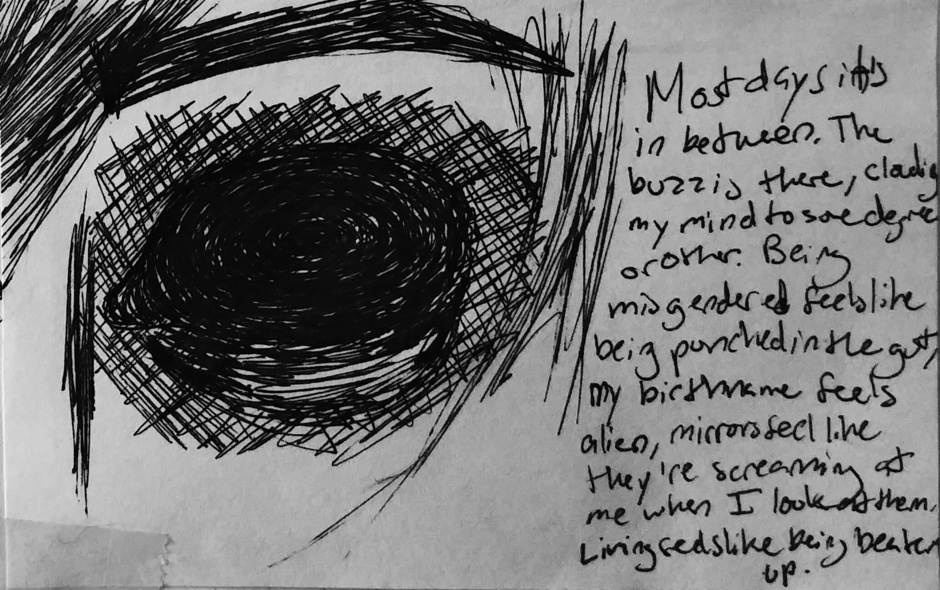 Most days it's
in between. The
buzz is there, clouding
my mind to some degree
or other. Being
misgendered feels like
being punched in the gut,
my birthname feels
alien, mirrors feel like
they're screaming at
me when I look at them.
Living feels like being beaten
up.